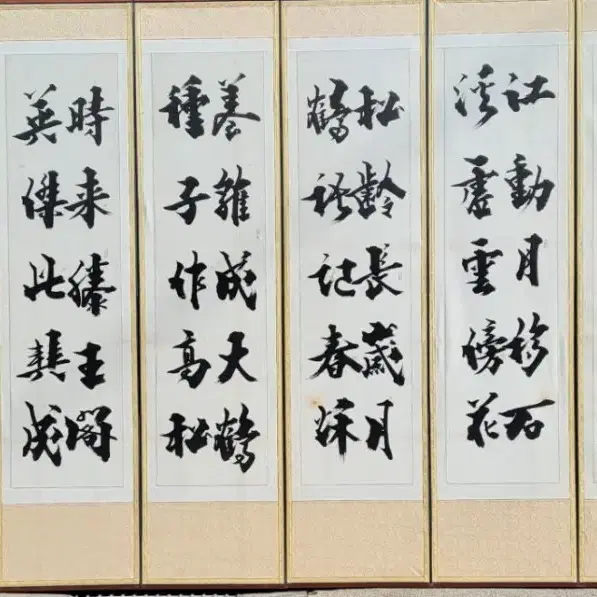 江動月移石
溪虛雲傍花
松齡長歲月
鶴語記春秋
養雛成大鶴
種子作高松
時来滕王閣
英傑此成